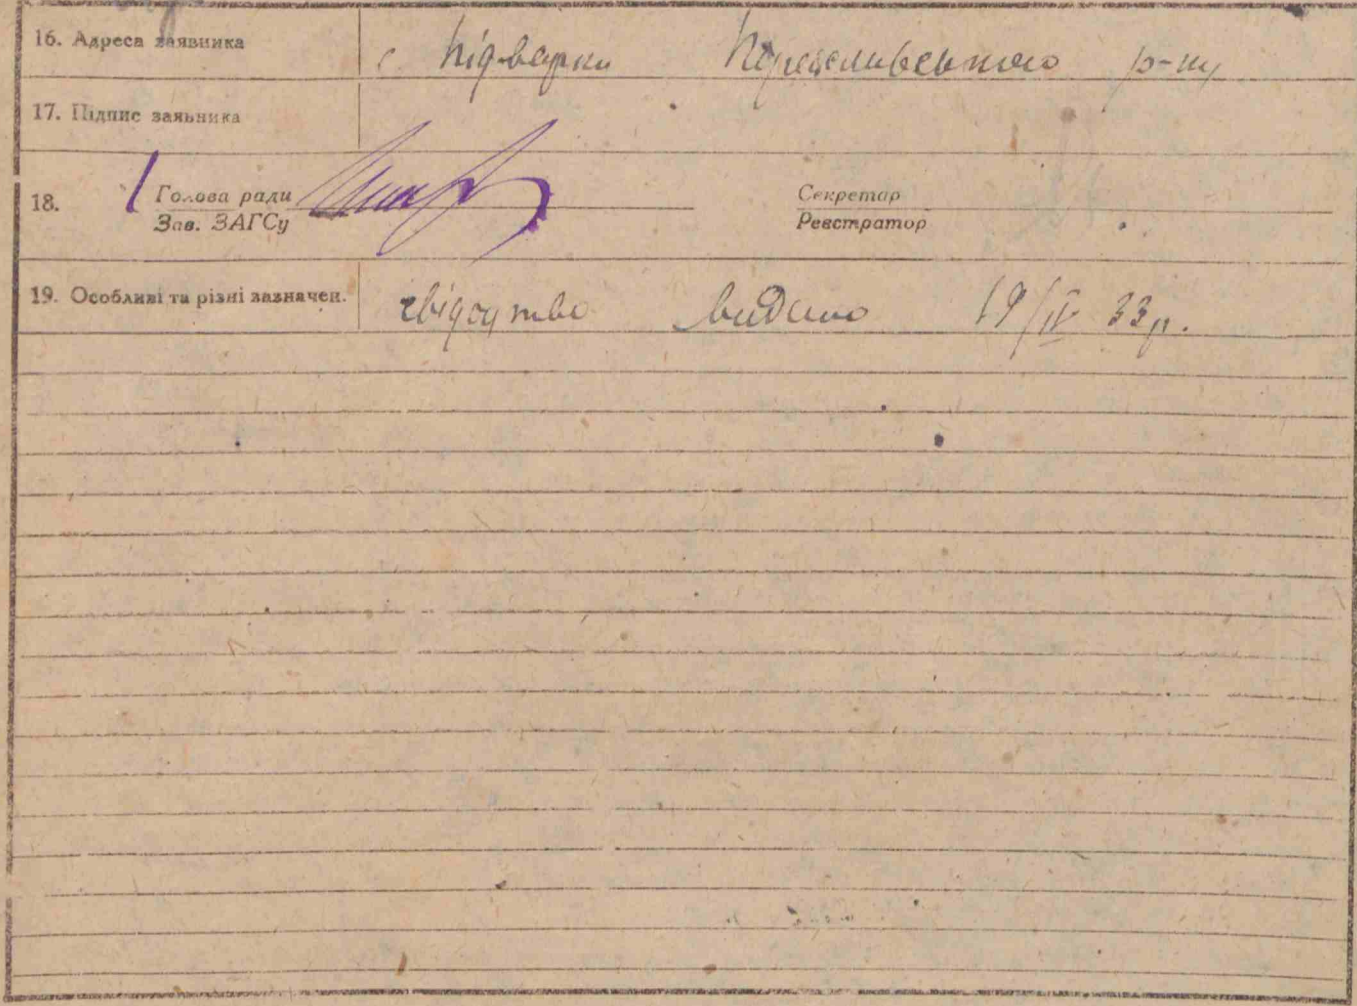 16. Адреса заявника с Підварки Переяславського р-ну
17. Підпис заявника
18. Голова ради Секретар
Зав. ЗАГСу Реєстратор
19. Особливі та різні зазначен. свідоцтво видано 19/IV 33 р.